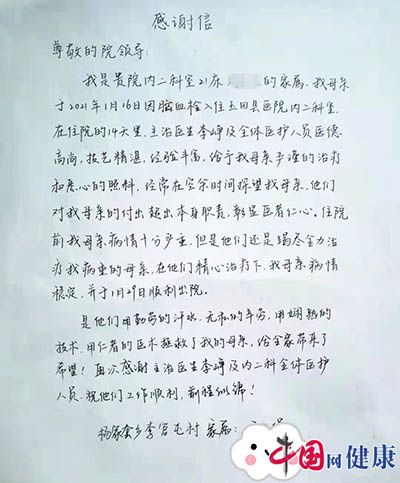 感谢信
尊敬的院领导:
我是贵院内二科室21床 的家属,我母亲
于2021年1月16日因脑血栓入住玉田县医院内二科室,
在住院的14天里,主治医生李峥及全体医护人员医德
高尚,技艺精湛,经验丰富,给予我母亲多谨的治疗
和悉心的照料,经常在空余时间探望我母亲,他们
对我母亲的付出超出本身职责,彰显医者仁心。住院
前我母亲病情十分严重,但是他们还是竭尽全力治
疗我病重的母亲,在他们精心治疗下,我母亲病情
稳定,并于1月29日顺利出院。
是他们用勤劳的汗水,无私的辛劳,用娴熟的
技术,用仁者的医术拯救了我的母亲,给全家带来了
希望!再次感谢主治医生李峥及内二科全体医护
人员,祝他们工作顺利,前程似锦!
杨家套乡李官屯村 家属:
中国网健康